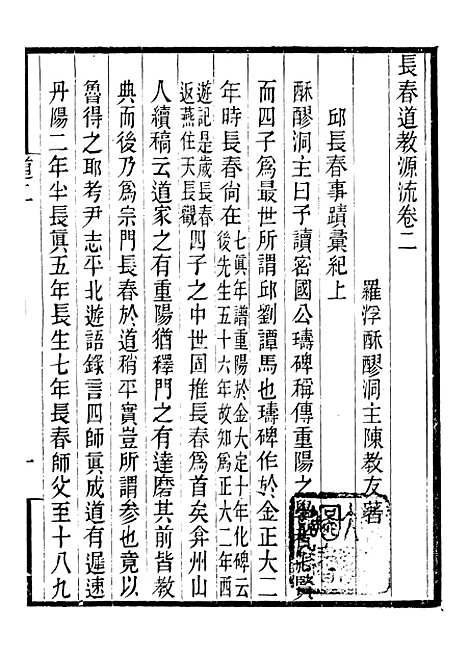 長春道教源流卷二
羅浮酥醪洞主陳教友著
邱長春事蹟彙紀上
酥醪洞主曰予讀密國公璹碑稱傳重陽之
而四子爲最世所謂邱劉譚馬也璹碑作於金正大二
年時長春尙在七眞年譜重陽於金大定十年化碑云
後先生五十六年故知爲正大二年西
遊記是歲長春
返燕住天長觀四子之中世固推長春爲首矣弇州山
人續稿云道家之有重陽猶釋門之有達磨其前皆教
典而後乃爲宗門長春於道稍平實豈所謂參也竟以
魯得之耶考尹志平北遊語錄言四師眞成道有遲速
丹陽二年半長眞五年長生七年長春師父至十八九
道二
一